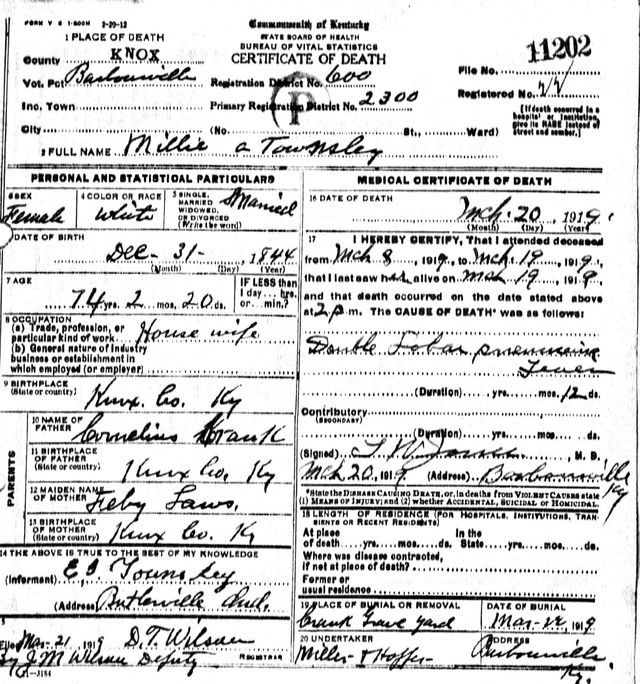 FORM V S 1-500M 2-29-12
Commonwealth of Kentucky
STATE BOARD OF HEALTH
BUREAU OF VITAL STATISTICS
CERTIFICATE OF DEATH
11202
1 PLACE OF DEATH
County KNOX
Vot. Pct. Barbourville
Registration District No. 600
File No.
Inc. Town
Primary Registration District No. 2300
Registered No. 22
City (No. St., Ward)
[If death occurred in a hospital or institution, give its NAME instead of street and number.]
2 FULL NAME Millie a Townsley
PERSONAL AND STATISTICAL PARTICULARS
6 SEX Female
4 COLOR OR RACE White
5 SINGLE, MARRIED WIDOWED, OR DIVORCED (Write the word) Married
DATE OF BIRTH
Dec- 31- 1844
(Month) (Day) (Year)
7 AGE
74 yrs. 2 mos. 20 ds.
IF LESS than 1 day... hrs. or min.?
8 OCCUPATION
(a) Trade, profession, or
particular kind of work House wife
(b) General nature of industry
business or establishment in
which employed (or employer)
9 BIRTHPLACE
(State or country) Knox Co. Ky
PARENTS
10 NAME OF FATHER Cornelius Hrank
11 BIRTHPLACE OF FATHER (State or country) Knox Co. Ky
12 MAIDEN NAME OF MOTHER Feby Laws.
13 BIRTHPLACE OF MOTHER (State or country) Knox Co. Ky
14 THE ABOVE IS TRUE TO THE BEST OF MY KNOWLEDGE
(Informant) E B Townsley
(Address) Butlerville Ind.
Filed Mar- 21 1919 D.T. Wilson
REGISTRAR
By J M Wilson Deputy
10-3184
MEDICAL CERTIFICATE OF DEATH
16 DATE OF DEATH
Mch. 20 1919.
(Month) (Day) (Year)
17 I HEREBY CERTIFY, That I attended deceased
from Mch 8 1919, to Mch. 19 1919,
that I last saw h alive on Mch 19 1919
and that death occurred on the date stated above
at 2 p m. The CAUSE OF DEATH was as follows:
Double Lobar pneumonia
Fever
(Duration) yrs. mos. 12 ds.
Contributory
(SECONDARY)
(Duration) yrs. mos. ds.
(Signed) M. D.
Mch 20 1919 (Address) Barbourville Ky
*State the DISEASE CAUSING DEATH, or, in deaths from VIOLENT CAUSES state
(1) MEANS OF INJURY; and (2) whether ACCIDENTAL, SUICIDAL or HOMICIDAL.
18 LENGTH OF RESIDENCE (FOR HOSPITALS, INSTITUTIONS, TRANSIENTS OR RECENT RESIDENTS)
At place of death yrs. mos. ds. In the State yrs. mos. ds.
Where was disease contracted,
if not at place of death?
Former or
usual residence
19 PLACE OF BURIAL OR REMOVAL
Crank Grave yard
DATE OF BURIAL
Mar- 22 1919
20 UNDERTAKER
Miller & Hopper
ADDRESS
Barbourville Ky.